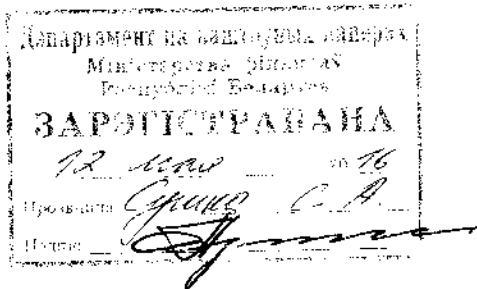 Дэпартамент па каштоўных паперах
Міністэрства фінансаў
Рэспублікі Беларусь
ЗАРЭГІСТРАВАНА
12 мая 20 16
Прозвішча С. А.
Подпіс